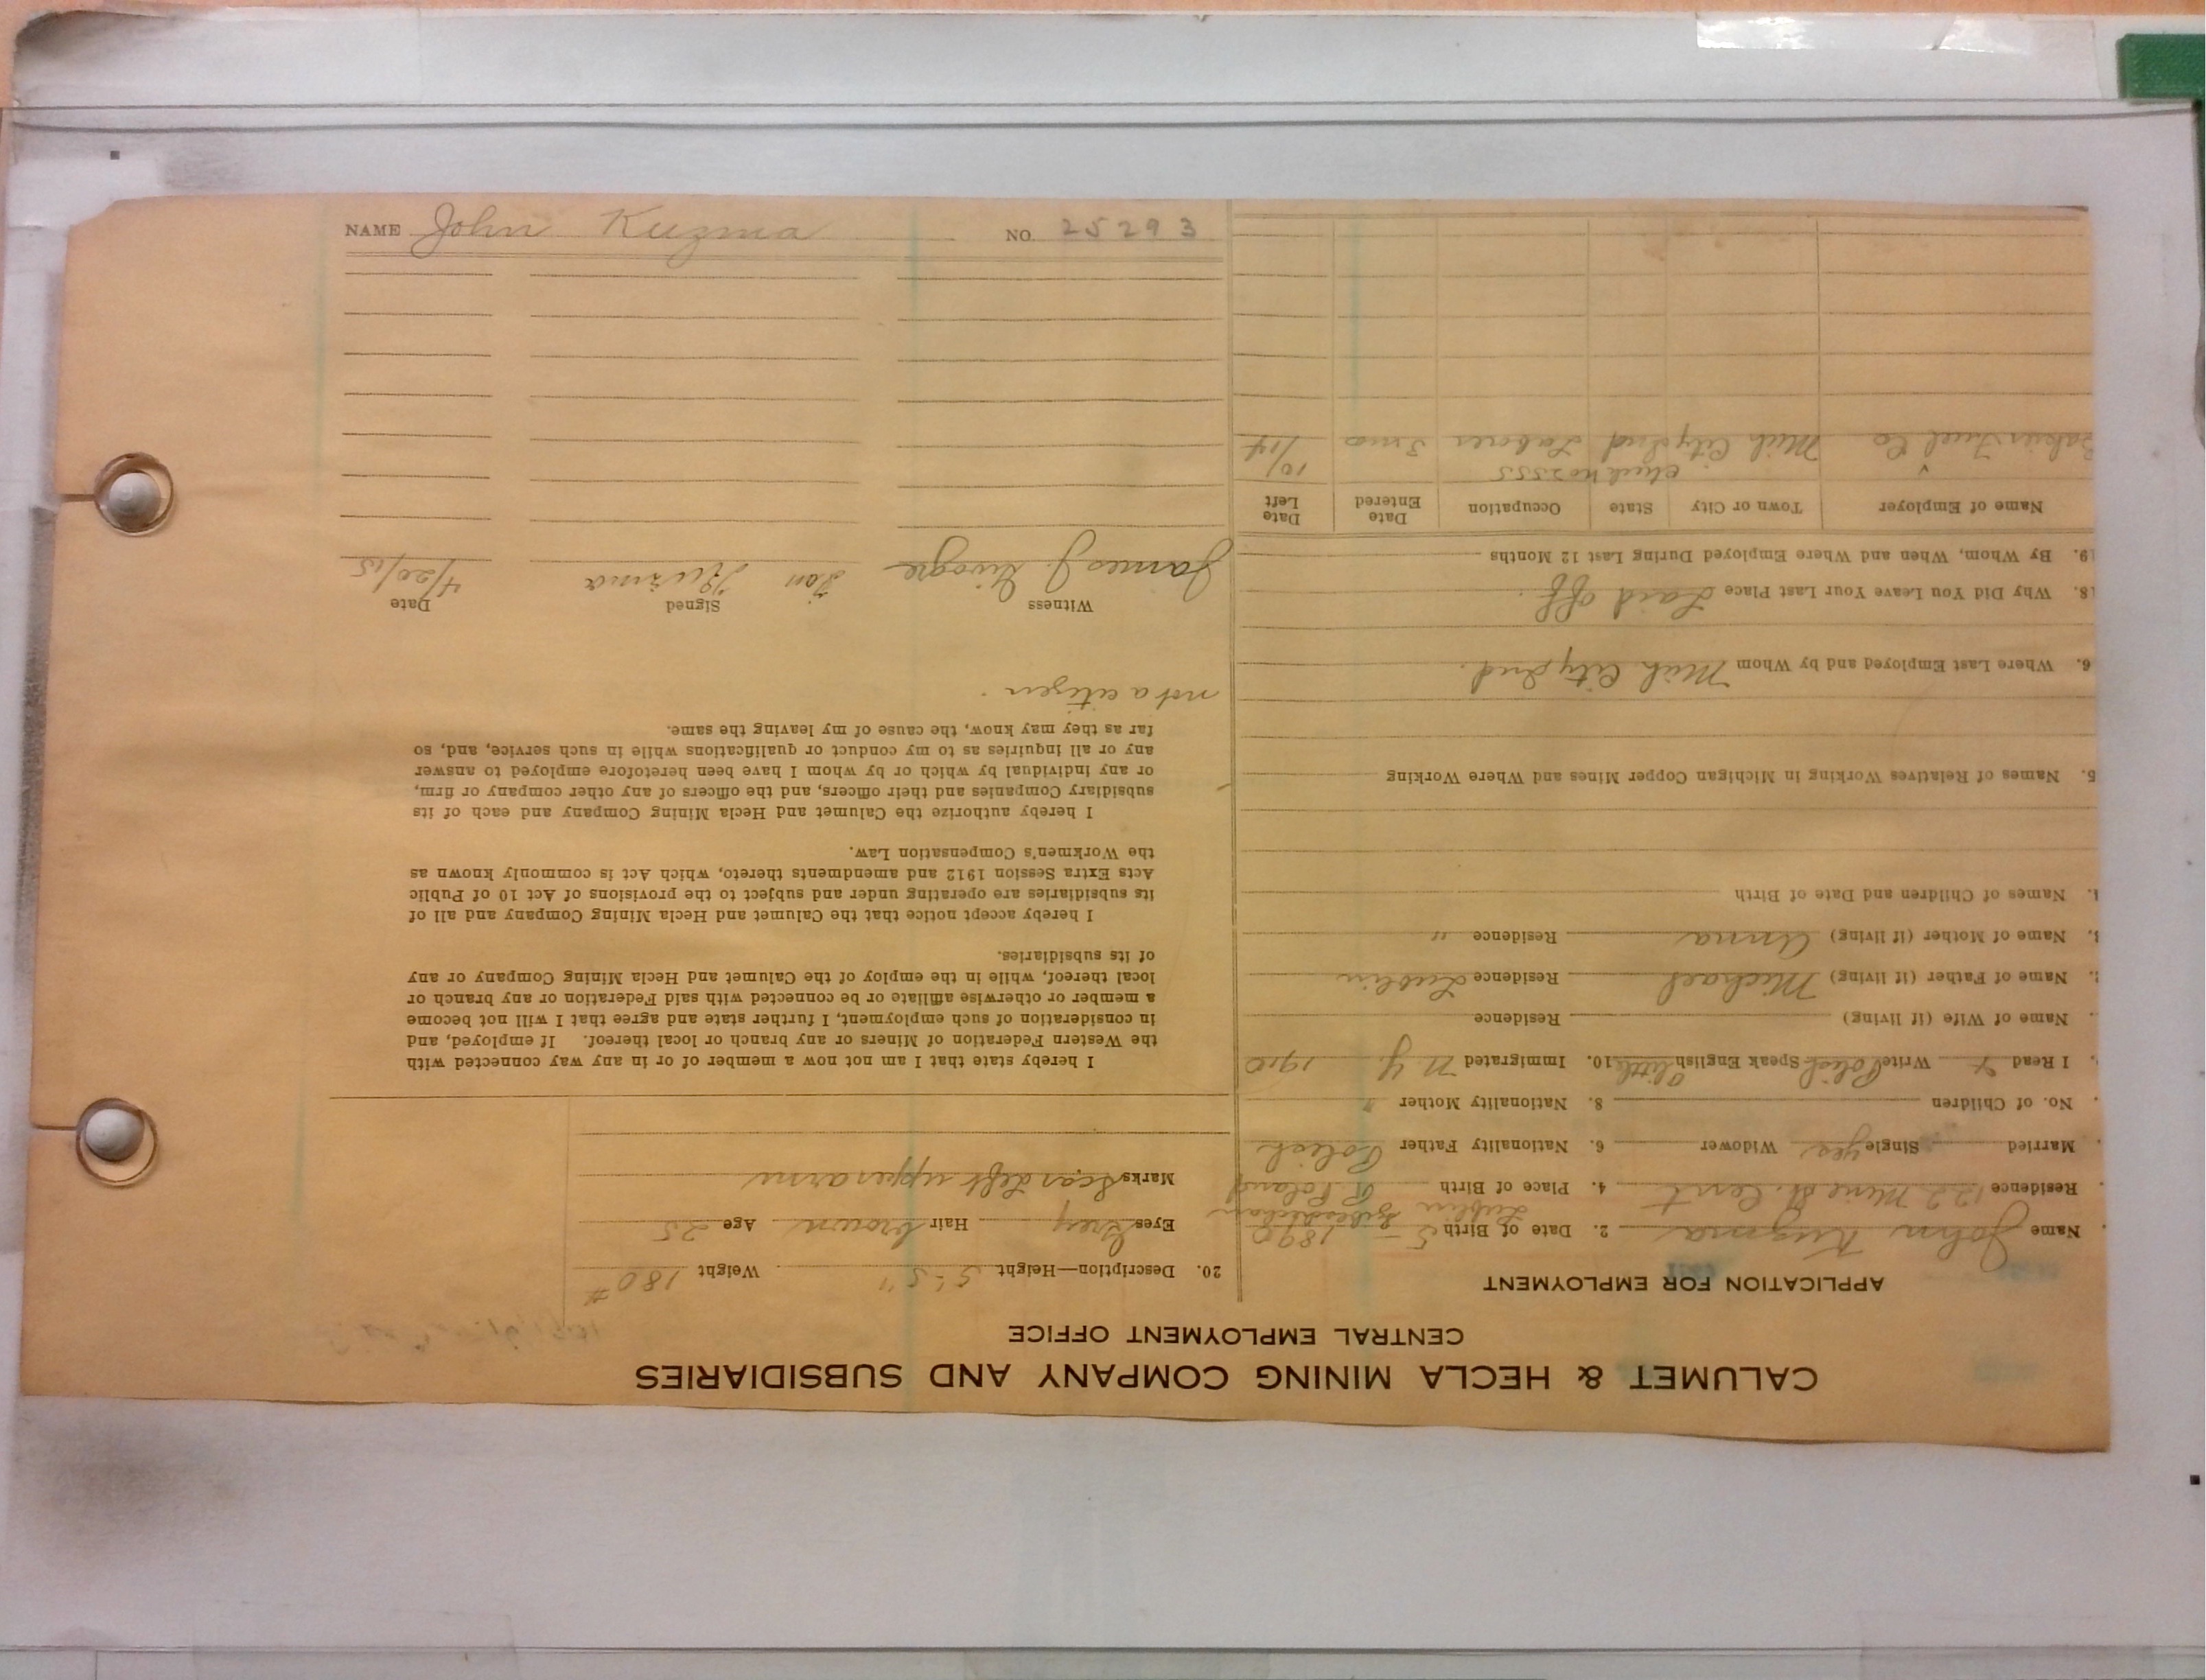 NAME John Kuzma NO. 25293
CALUMET & HECLA MINING COMPANY AND SUBSIDIARIES
CENTRAL EMPLOYMENT OFFICE
APPLICATION FOR EMPLOYMENT
Name John Kuzma 2. Date of Birth 5 - 1890
Lublin
Residence 122 Mine St. Cent 4. Place of Birth R. Poland
Married Single yes Widower 6. Nationality Father Polish
No. of Children 8. Nationality Mother "
I Read Write Polish Speak English little 10. Immigrated N.Y. 1910
Name of Wife (if living) Residence
Name of Father (if living) Michael Residence Lublin
Name of Mother (if living) Anna Residence "
Names of Children and Date of Birth
5. Names of Relatives Working in Michigan Copper Mines and Where Working
6. Where Last Employed and by Whom Mich City Ind.
18. Why Did You Leave Your Last Place Laid off.
19. By Whom, When and Where Employed During Last 12 Months
Name of Employer Town or City State Occupation Date Entered Date Left
Check no 2555 10/
Fuel Co Mich City Ind Laborer 3 mo /14
20. Description—Height 5'-5" Weight 180 #
Eyes Grey Hair brown Age 25
Marks Scar left upper arm
I hereby state that I am not now a member of or in any way connected with
the Western Federation of Miners or any branch or local thereof. If employed, and
in consideration of such employment, I further state and agree that I will not become
a member or otherwise affiliate or be connected with said Federation or any branch or
local thereof, while in the employ of the Calumet and Hecla Mining Company or any
of its subsidiaries.
I hereby accept notice that the Calumet and Hecla Mining Company and all of
its subsidiaries are operating under and subject to the provisions of Act 10 of Public
Acts Extra Session 1912 and amendments thereto, which Act is commonly known as
the Workmen's Compensation Law.
I hereby authorize the Calumet and Hecla Mining Company and each of its
subsidiary Companies and their officers, and the officers of any other company or firm,
or any individual by which or by whom I have been heretofore employed to answer
any or all inquiries as to my conduct or qualifications while in such service, and, so
far as they may know, the cause of my leaving the same.
not a citizen.
Witness Signed Date
James J. Jan Kuzma 4/20/15